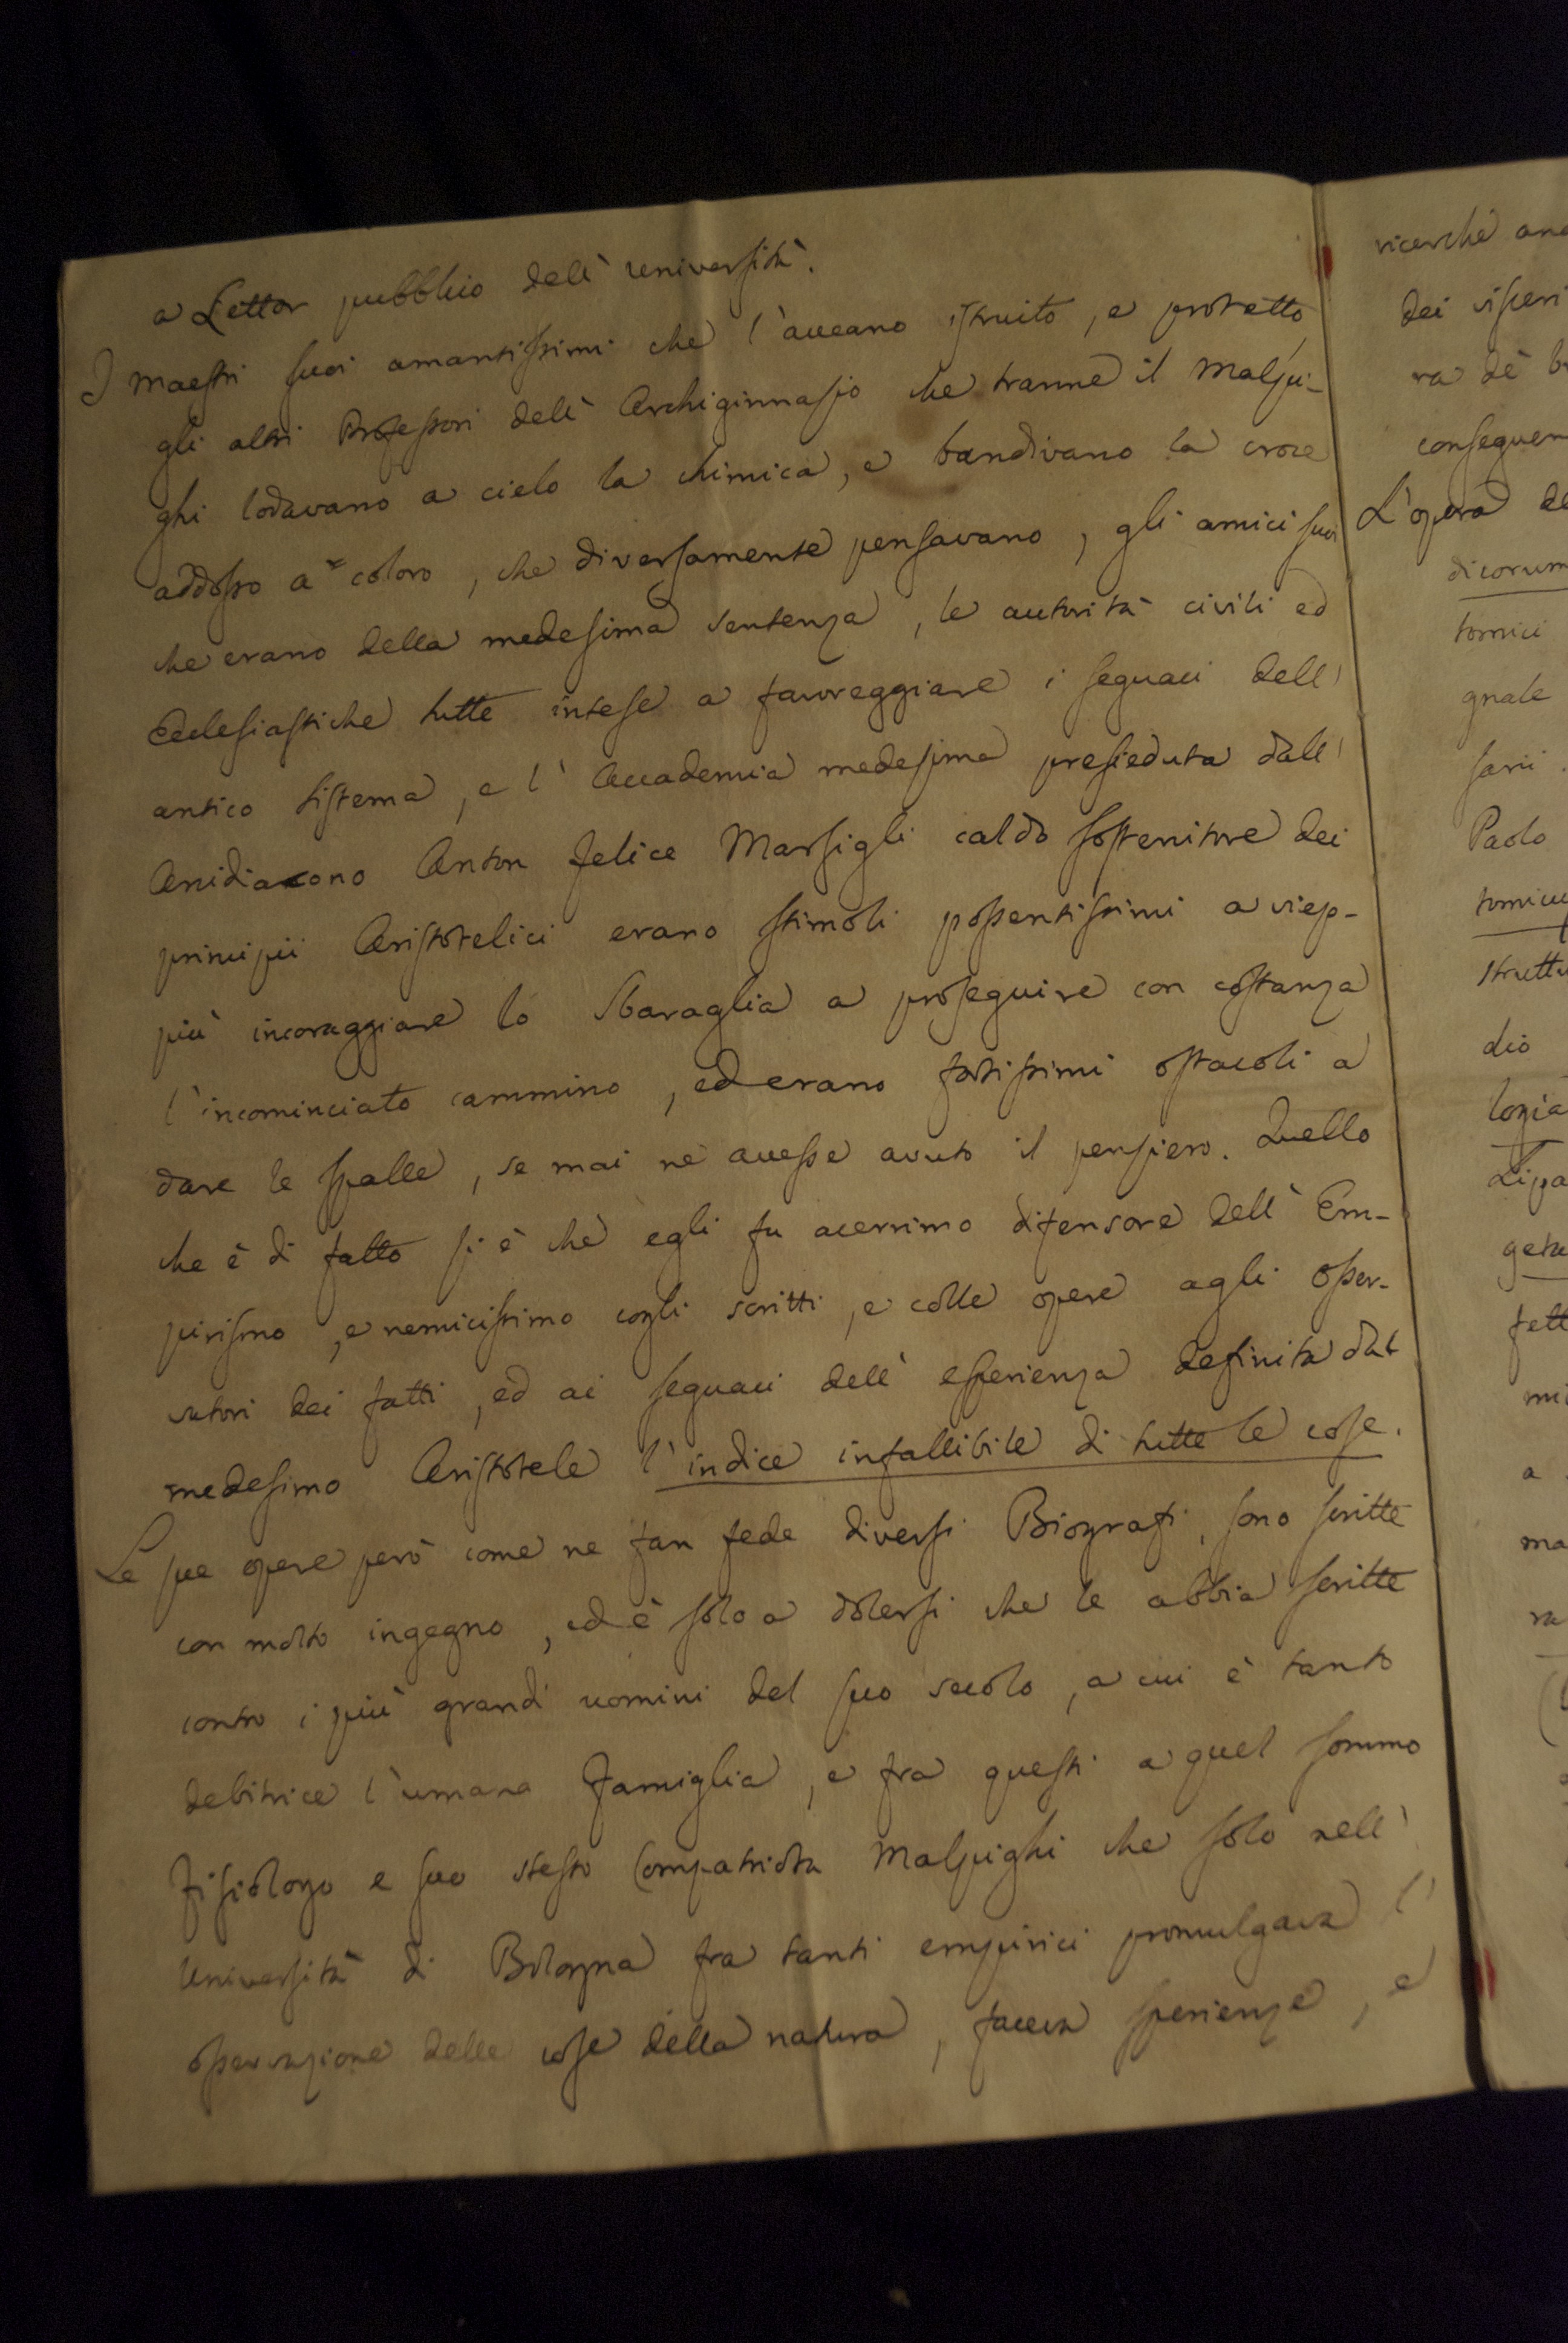 a Lettor pubblico dell' università.
I maestri suoi amantissimi che l'aveano istruito, e protetto,
gli altri Professori dell' Archiginnasio che tranne il Malpi-
ghi lodavano a cielo la chimica, e bandivano la croce
addosso a coloro, che diversamente pensavano, gli amici suoi
che erano della medesima sentenza, le autorità civili ed
Ecclesiastiche tutte intese a favoreggiare i seguaci dell'
antico sistema, e l' Accademia medesima presieduta dall'
Arcidiacono Anton Felice Marsigli caldo sostenitore dei
principii Aristotelici erano stimoli possentissimi a viep-
più incoraggiare lo Sbaraglia a proseguire con costanza
l'incominciato cammino, ed erano fortissimi ostacoli a
dare le spalle, se mai ne avesse avuto il pensiero. Quello
che è di fatto si è che egli fu acerrimo difensore dell' Em-
pirismo, e nemicissimo cogli scritti, e colle opere agli osser-
vatori dei fatti, ed ai seguaci dell' esperienza definita dal
medesimo Aristotele l'indice infallibile di tutte le cose.
Le sue opere però come ne fan fede diversi Biografi, sono scritte
con molto ingegno, ed è solo a dolersi che le abbia scritte
contro i più grandi uomini del suo secolo, a cui è tanto
debitrice l'umana Famiglia, e fra questi a quel sommo
Fisiologo e suo stesso Compatriota Malpighi che solo nell'
Università di Bologna fra tanti empirici promulgava l'
osservazione delle cose della natura, faceva sperienze, e
ricerche
dei
ra de'
L'opera
dicorum
tomici
gnale
sarii
Paolo
dio
logia
a